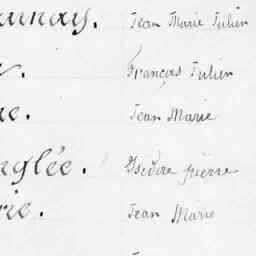 aunay. Jean Marie Julien
r. François Julien
ne. Jean Marie
nglée. Isidore pierre
rie. Jean Marie